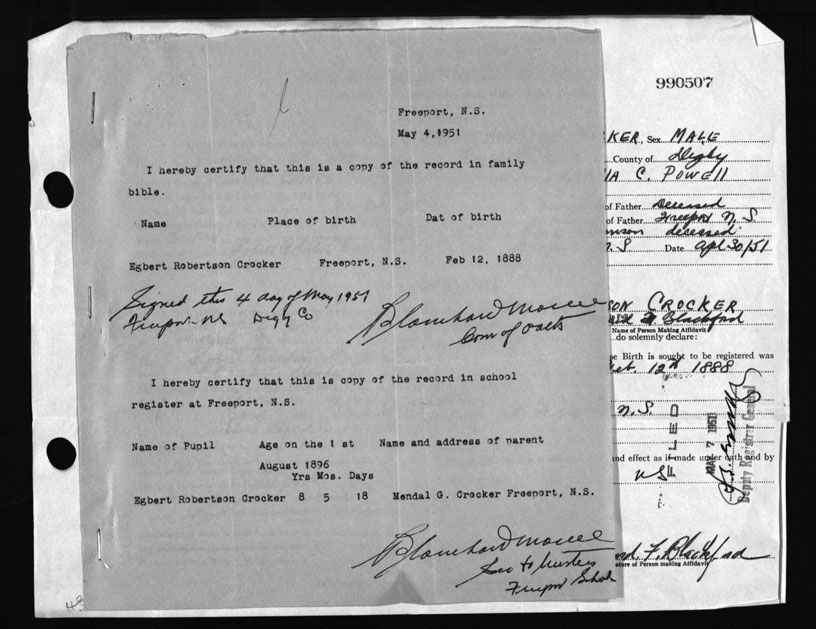 990507
Freeport, N.S.
May 4,1951
I hereby certify that this is a copy of the record in family
bible.
Name Place of birth Dat of birth
Egbert Robertson Crocker Freeport, N.S. Feb 12, 1888
Signed this 4 day of May 1951
Freeport N.S
Blanchard
Com of oaths
I hereby certify that this is copy of the record in school
register at Freeport, N.S.
Name of Pupil Age on the 1 st Name and address of parent
August 1896
Yrs Mos. Days
Egbert Robertson Crocker 8 5 18 Mendal G. Crocker Freeport, N.S.
Blanchard
Sec to trustees
Freeport School
KER, Sex MALE
County of Digby
C. POWELL
of Father Deceased
of Father Freeport N.S
deceased
.S Date Apl 30/51
SON CROCKER
Blackford
Name of Person Making Affidavit
do solemnly declare:
se Birth is sought to be registered was
12th 1888
N.S.
FILED
MAY 7 1951
Deputy Registrar General
nd effect as if made under oath and by
NS
F. Blackford
ature of Person making Affidavit